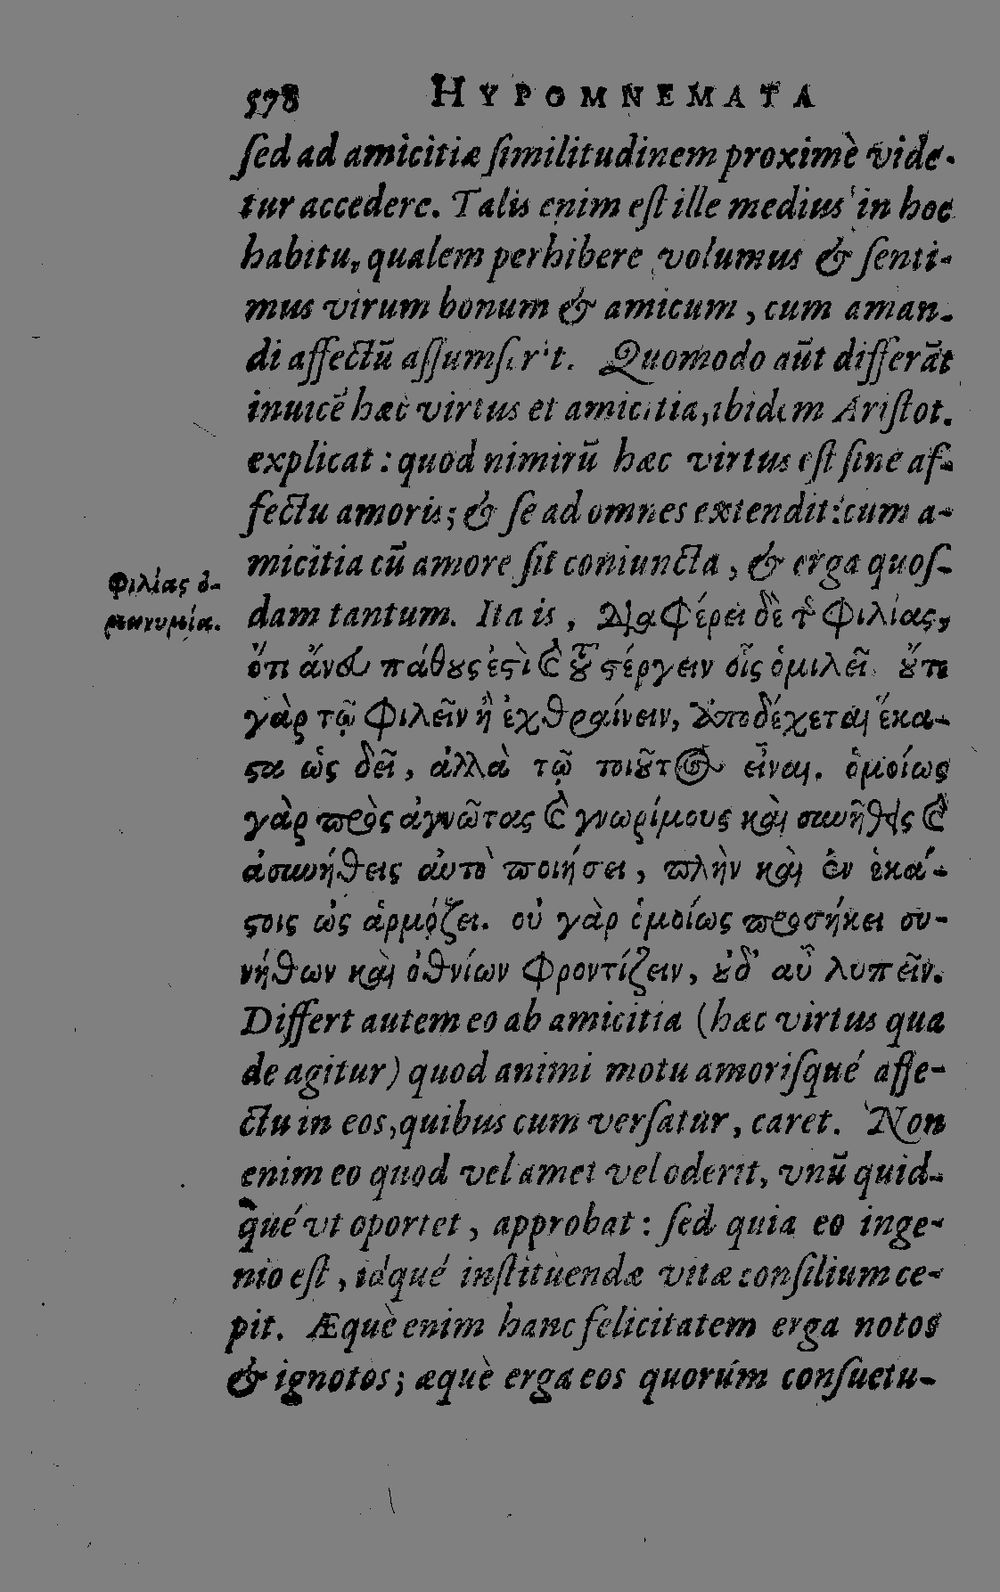 578 HYPOMNEMATA
ſed ad amicitiæ ſimilitudinem proximè vide-
tur accedere. Talis enim eſt ille medius in hoc
habitu, qualem perhibere volumus & ſenti-
mus virum bonum & amicum, cum aman-
di affectū aſſumſerit. Quomodo aūt differāt
inuicē hæc virtus et amicitia, ibidem Ariſtot.
explicat: quod nimirū hæc virtus eſt ſine af-
fectu amoris; & ſe ad omnes extendit: cum a-
micitia cū amore ſit coniuncta, & erga quoſ-
Φιλίας ὁ-
μωνυμία.
dam tantum. Ita is, Διαφέρει δὲ τ̃ Φιλίας,
ὅτι ἄνευ πάθους ἐϛὶ ϗ̀ τοῦ ϛέργειν οἷς ὁμιλεῖ. οὔτε
γὰρ τῷ Φιλεῖν ἢ ἐχθραίνειν, ὑποδέχεται ἕκα-
ϛα ὡς δεῖ, ἀλλὰ τῷ τοιοῦτος εἶναι. ὁμοίως
γὰρ πρὸς ἀγνῶτας ϗ̀ γνωρίμους καὶ συνήθεις ϗ̀
ἀσυνήθεις αὐτὸ ποιήσει, πλὴν καὶ ἐν ἑκά-
ϛοις ὡς ἁρμόζει. οὐ γὰρ ὁμοίως προσήκει συ-
νήθων καὶ ὀθνίων Φροντίζειν, οὐδ’ αὖ λυπεῖν.
Differt autem eo ab amicitia (hæc virtus qua
de agitur) quod animi motu amoriſqué affe-
ctu in eos, quibus cum verſatur, caret. Non
enim eo quod vel amet vel oderit, vnū quid-
qué vt oportet, approbat: ſed quia eo inge-
nio eſt, idqué inſtituendæ vitæ conſilium ce-
pit. Æquè enim hanc felicitatem erga notos
& ignotos; æquè erga eos quorúm conſuetu-